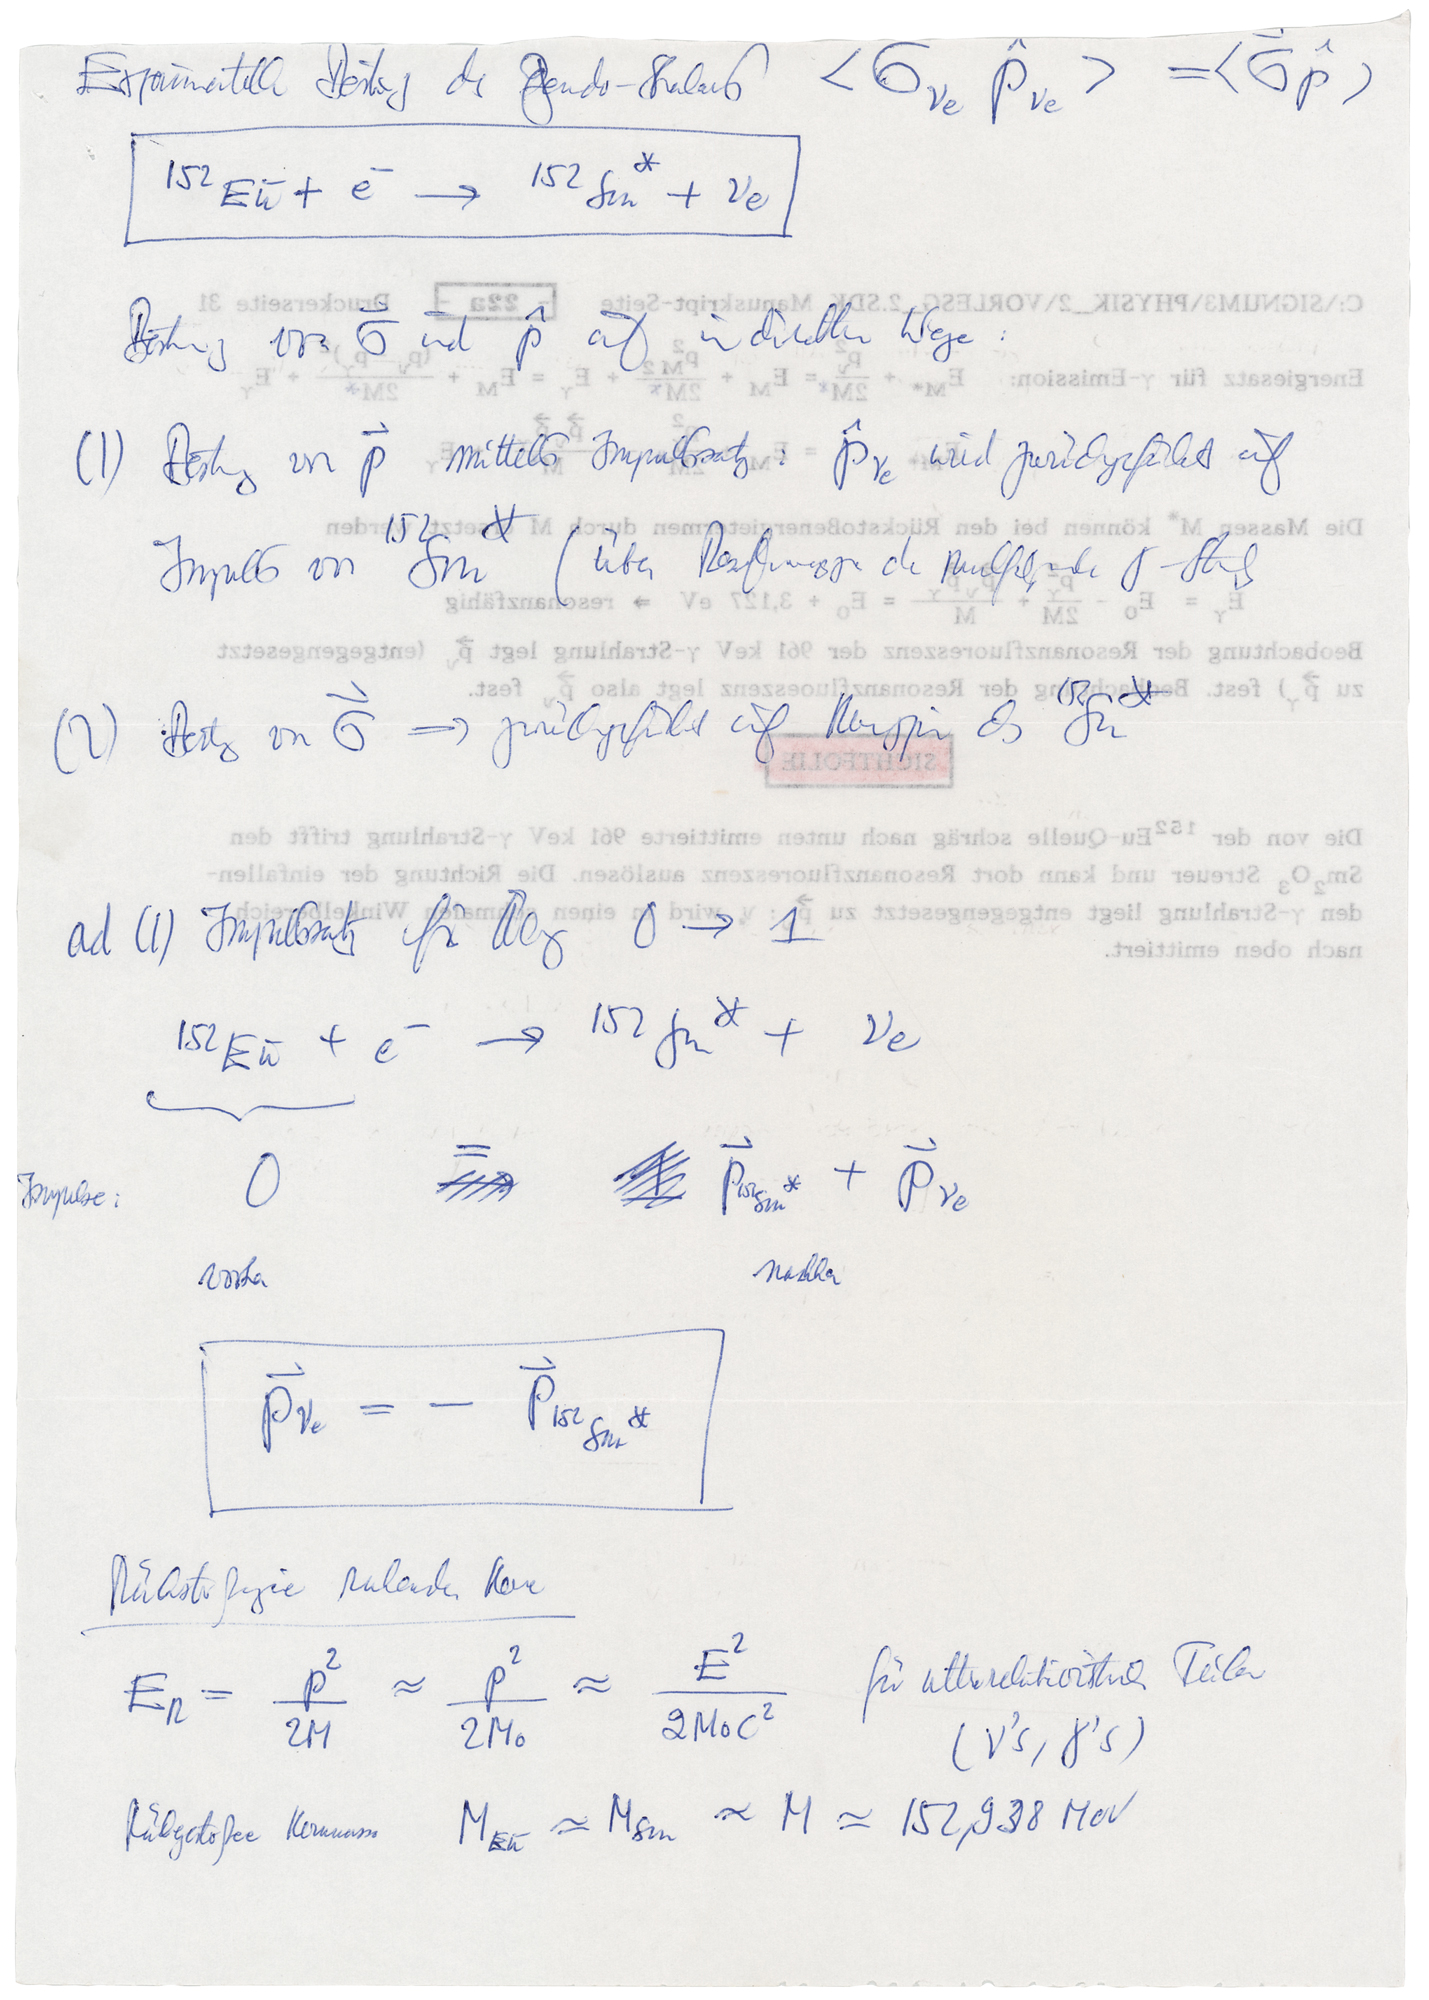 Experimentelle Bestimmg der Pseudo-Skalars < σ_νe p̂_νe > = < σ⃗ p̂ >
¹⁵²Eu + e⁻ → ¹⁵²Sm* + νe
Bestimmg von σ⃗ und p̂ auf indirektem Wege :
(1) Bestimmg von p⃗ mittels Impulssatz : p̂_νe wird zurückgeführt auf
Impuls von ¹⁵²Sm* (über der nachfolgende γ-Strahlg
(2) Bestimmg von σ⃗ ⇒ zurückgeführt auf Kernspin des ¹⁵²Sm*
ad (1) Impulssatz für Überg 0 → 1
¹⁵²Eu + e⁻ → ¹⁵²Sm* + νe
Impulse: 0 = p⃗_¹⁵²Sm* + p⃗_νe
vorher nachher
p⃗_νe = - p⃗_¹⁵²Sm*
Rückstoßenergie ruhender Kern
E_R = p²/2M ≈ p²/2M₀ ≈ E²/2M₀c² für ultrarelativistische Teilchen
(ν's, γ's)
Kernmasse M_Eu ≈ M_Sm ≈ M ≈ 152,938 MeV
C:\SIGNUM3\PHYSIK_2\VORLESG_2.SDK Manuskript-Seite - 22a - Druckerseite 31
Energiesatz für γ-Emission:
Die Massen M* können bei den Rückstoßenergietermen durch M ersetzt werden
E_γ = E₀ - p_γ²/2M + p_ν p_γ/M = E₀ + 3,127 eV ⇒ resonanzfähig
Beobachtung der Resonanzfluoreszenz der 961 keV γ-Strahlung legt p⃗_ν (entgegengesetzt
zu p⃗_γ) fest. Beobachtung der Resonanzfluoeszenz legt also p⃗_ν fest.
SICHTFOLIE
Die von der ¹⁵²Eu-Quelle schräg nach unten emittierte 961 keV γ-Strahlung trifft den
Sm₂O₃ Streuer und kann dort Resonanzfluoreszenz auslösen. Die Richtung der einfallen-
den γ-Strahlung liegt entgegengesetzt zu p⃗_ν : ν wird in einen schmalen Winkelbereich
nach oben emittiert.